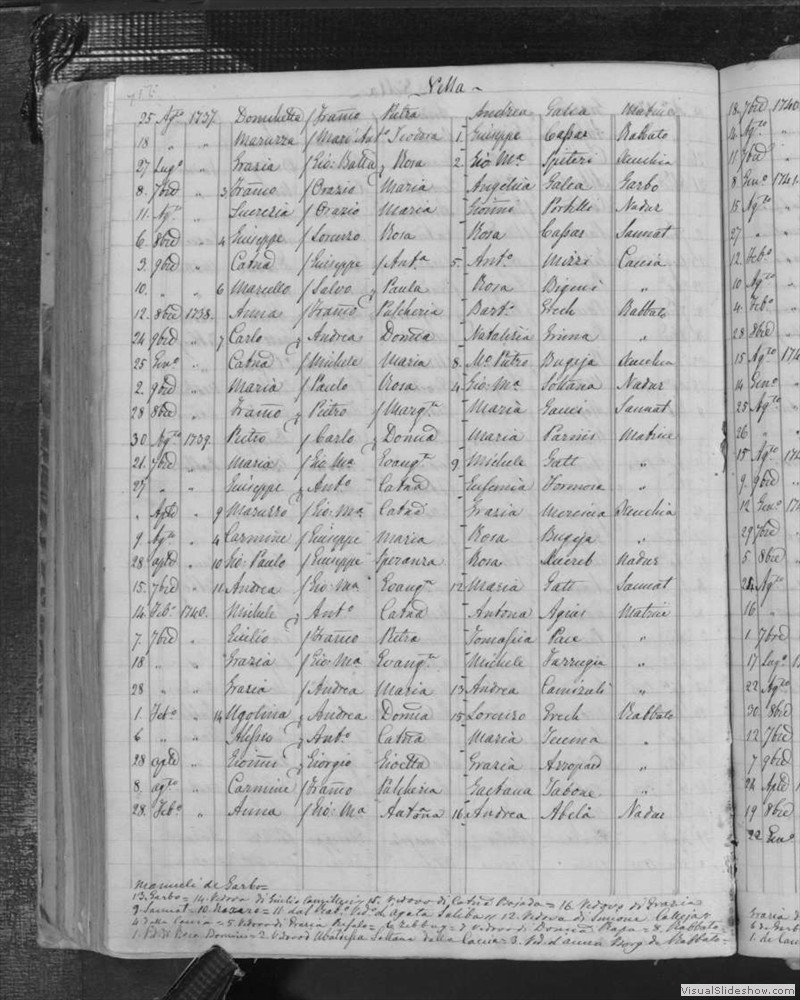 Vella
25 Agto 1737 Domchetta / Franco Petra Andrea Galea Matrice
18 " " Maruzza / Mari Anto Teodora 1. Giuseppe Cassar Rabbato
27 Lugo " Grazia / Gio: Batta Rosa 2. Gio Ma Spiteri Xeuchia
8. 7bre " 3 Franco / Orazio Maria Angelica Galea Garbo
11. Agto " Lucrezia / Orazio Maria Gionni Portelli Nadur
6. 8bre " 4 Giuseppe / Lorenzo Rosa Rosa Cassar Sannat
3. 9bre " Catna / Giuseppe / Anta 5. Anto Mizzi Caccia
10. " " 6 Marcello / Salvo Paula Rosa Bigeni "
12. 8bre 1738. Anna / Franco Pulcheria Barto Grech Rabbato
24 9bre " 7 Carlo Andrea Domca Natalizia "
25 Geno " Catna / Michele Maria 8. Mo Pietro Bugeja Xeuchia
2. 9bre " Maria / Paulo Rosa 4. Gio: Ma Soltana Nadur
28 8bre " Franco Pietro / Margta Maria Gauci Sannat
30 Agto 1739. Pietro / Carlo Domca Maria Parnis Matrice
21. 7bre " Maria / Gio Ma Evangta 9. Michele Gatt "
27 " " Giuseppe Anto Catna Eufemia Formosa "
" Aple " 9 Maruzzo / Gio: Ma Catna Grazia Mercieca Xeuchia
9 Agto " 4 Carmine / Giuseppe Maria Rosa Bugeja "
28 aple " 10 Gio: Paulo / Giuseppe Speranza Rosa Xuereb Nadur
15. 7bre " 11 Andrea / Gio: Ma Evangta 12. Maria Gatt Sannat
14 Febo 1740. Michele Anto Catna Antona Agius Matrice
7. 7bre " Giulio / Franco Petra Tomasia Pace "
18 " " Grazia / Gio: Ma Evangta Michele Farrugia "
28 " " Grazia / Andrea Maria 13. Andrea Camizuli "
1. Febo " 14 Ugolina Andrea Domca 15. Lorenzo Grech Rabbato
6 " " Alfeo Anto Catna Maria Teuma "
28 aple " Gionni Giorgio Gioetta Grazia Azzopard "
8. agto " Carmine / Franco Pulcheria Gaetana Tabone "
28. Febo " Anna / Gio: Ma Antona 16. Andrea Abela Nadur
Manueli de Garbo=
13. Garbo= 14. Vedova di Giulio Camilleri= 15. Vedovo di Catna Pajada= 16. Vedovo di Grazia
9. Sannat= 10. Naxaro= 11. Vedo di Agata Saliba= 12. Vedova di Simone Calleja=
4. della Caccia= 5. Vedovo di Grazia = 6. Zebbug= 7. Vedovo di Domca Rapa= 8. Rabbato=
1. Vedo di Rosa 2. Vedovo Soltana della Caccia= 3. Vedo d'Anna de Rabbato=
18. 7bre 1740
4. Agto "
11. 7bre "
8 Geno 1741
15 Agto
27 "
12 Febo
10 Agto
4. Febo
28 8bre
15 Agto
14 Geno
25 Agto
26 "
15 Agto
9. 9bre
12 Geno
29 7bre
5. 8bre
24 Agto
16 "
1. 7bre
17 Lugo
22 Agto
30 8bre
12 7bre
7 9bre
24 Aple
19 8bre
22 Geno
VisualSlideshow.com